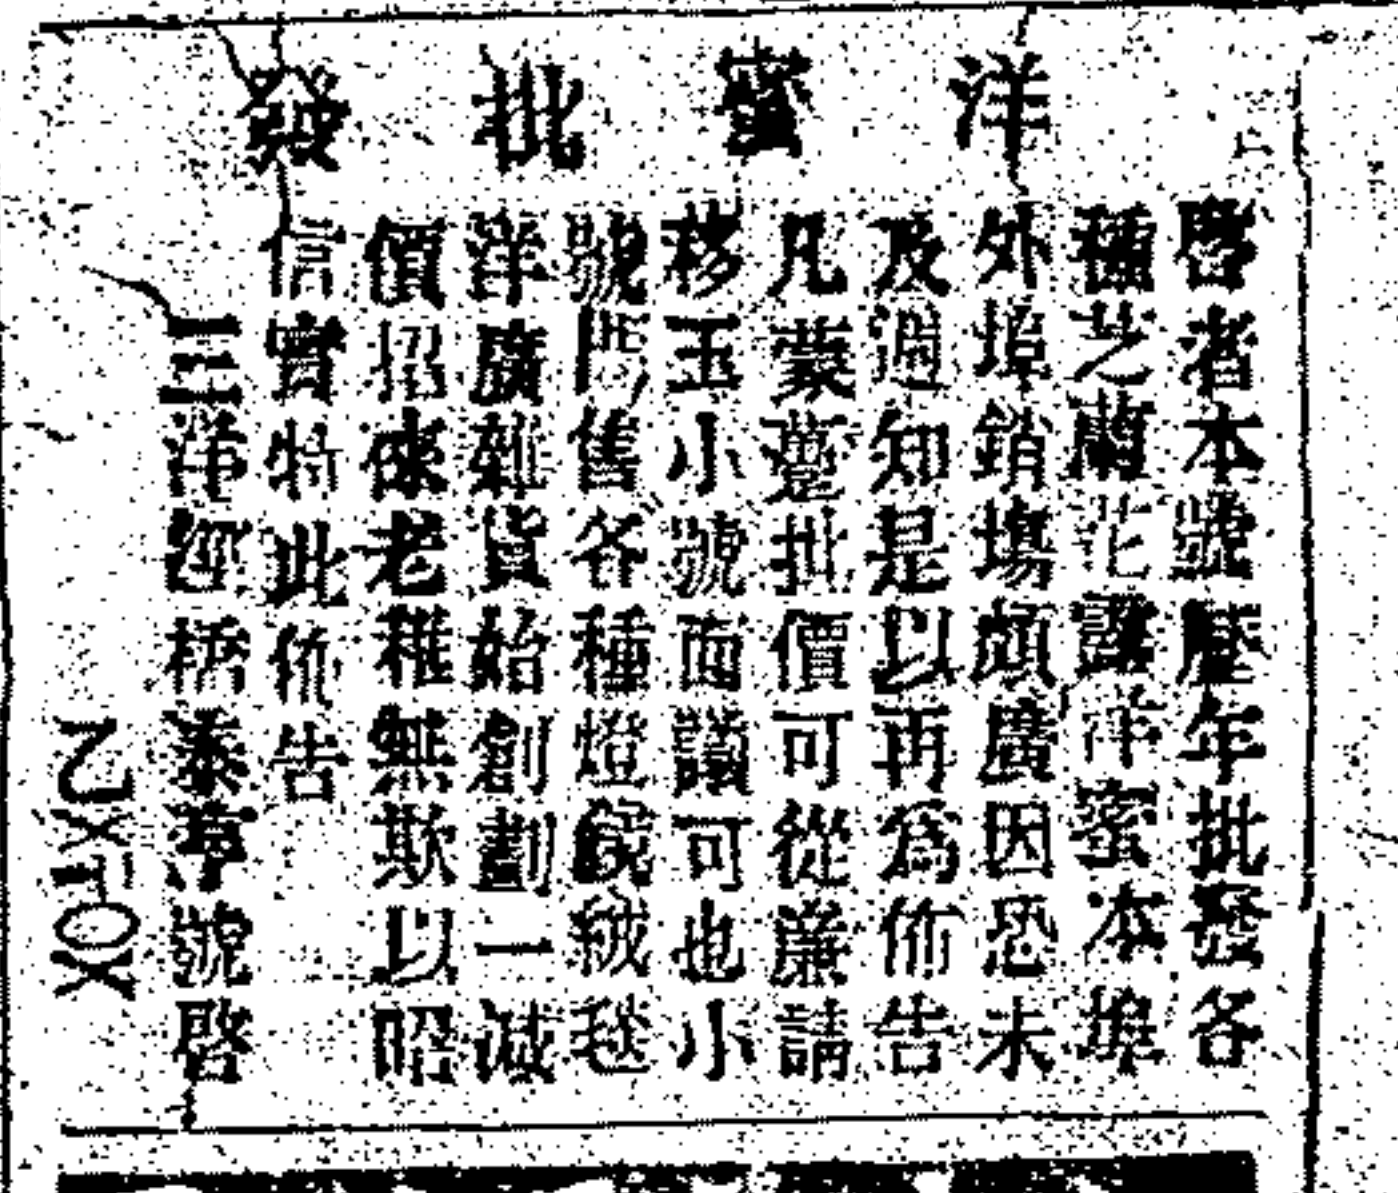 洋蜜批發
啓者本號歷年批發各
種芝蘭花露洋蜜本埠
外埠銷塲頗廣因恐未
及週知是以再爲佈告
凡蒙躉批價可從廉請
移玉小號面議可也小
號開售各種燈罩毧毯
洋廣雜貨始創劃一減
價招徠老稚無欺以昭
信實特此佈告
三洋涇橋泰亨號啓